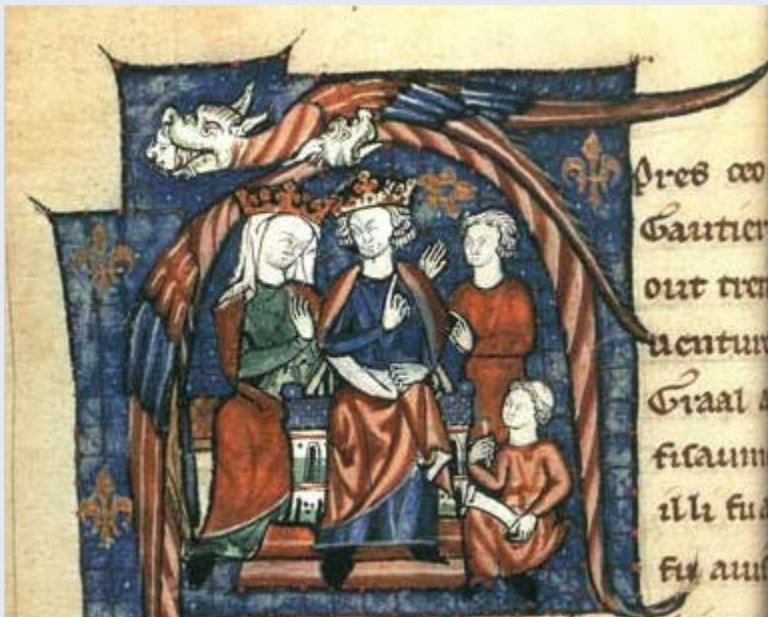 Pres ceo
Gautier
out tret
uenture
Graal a
fisaum
illi fu
fu auis